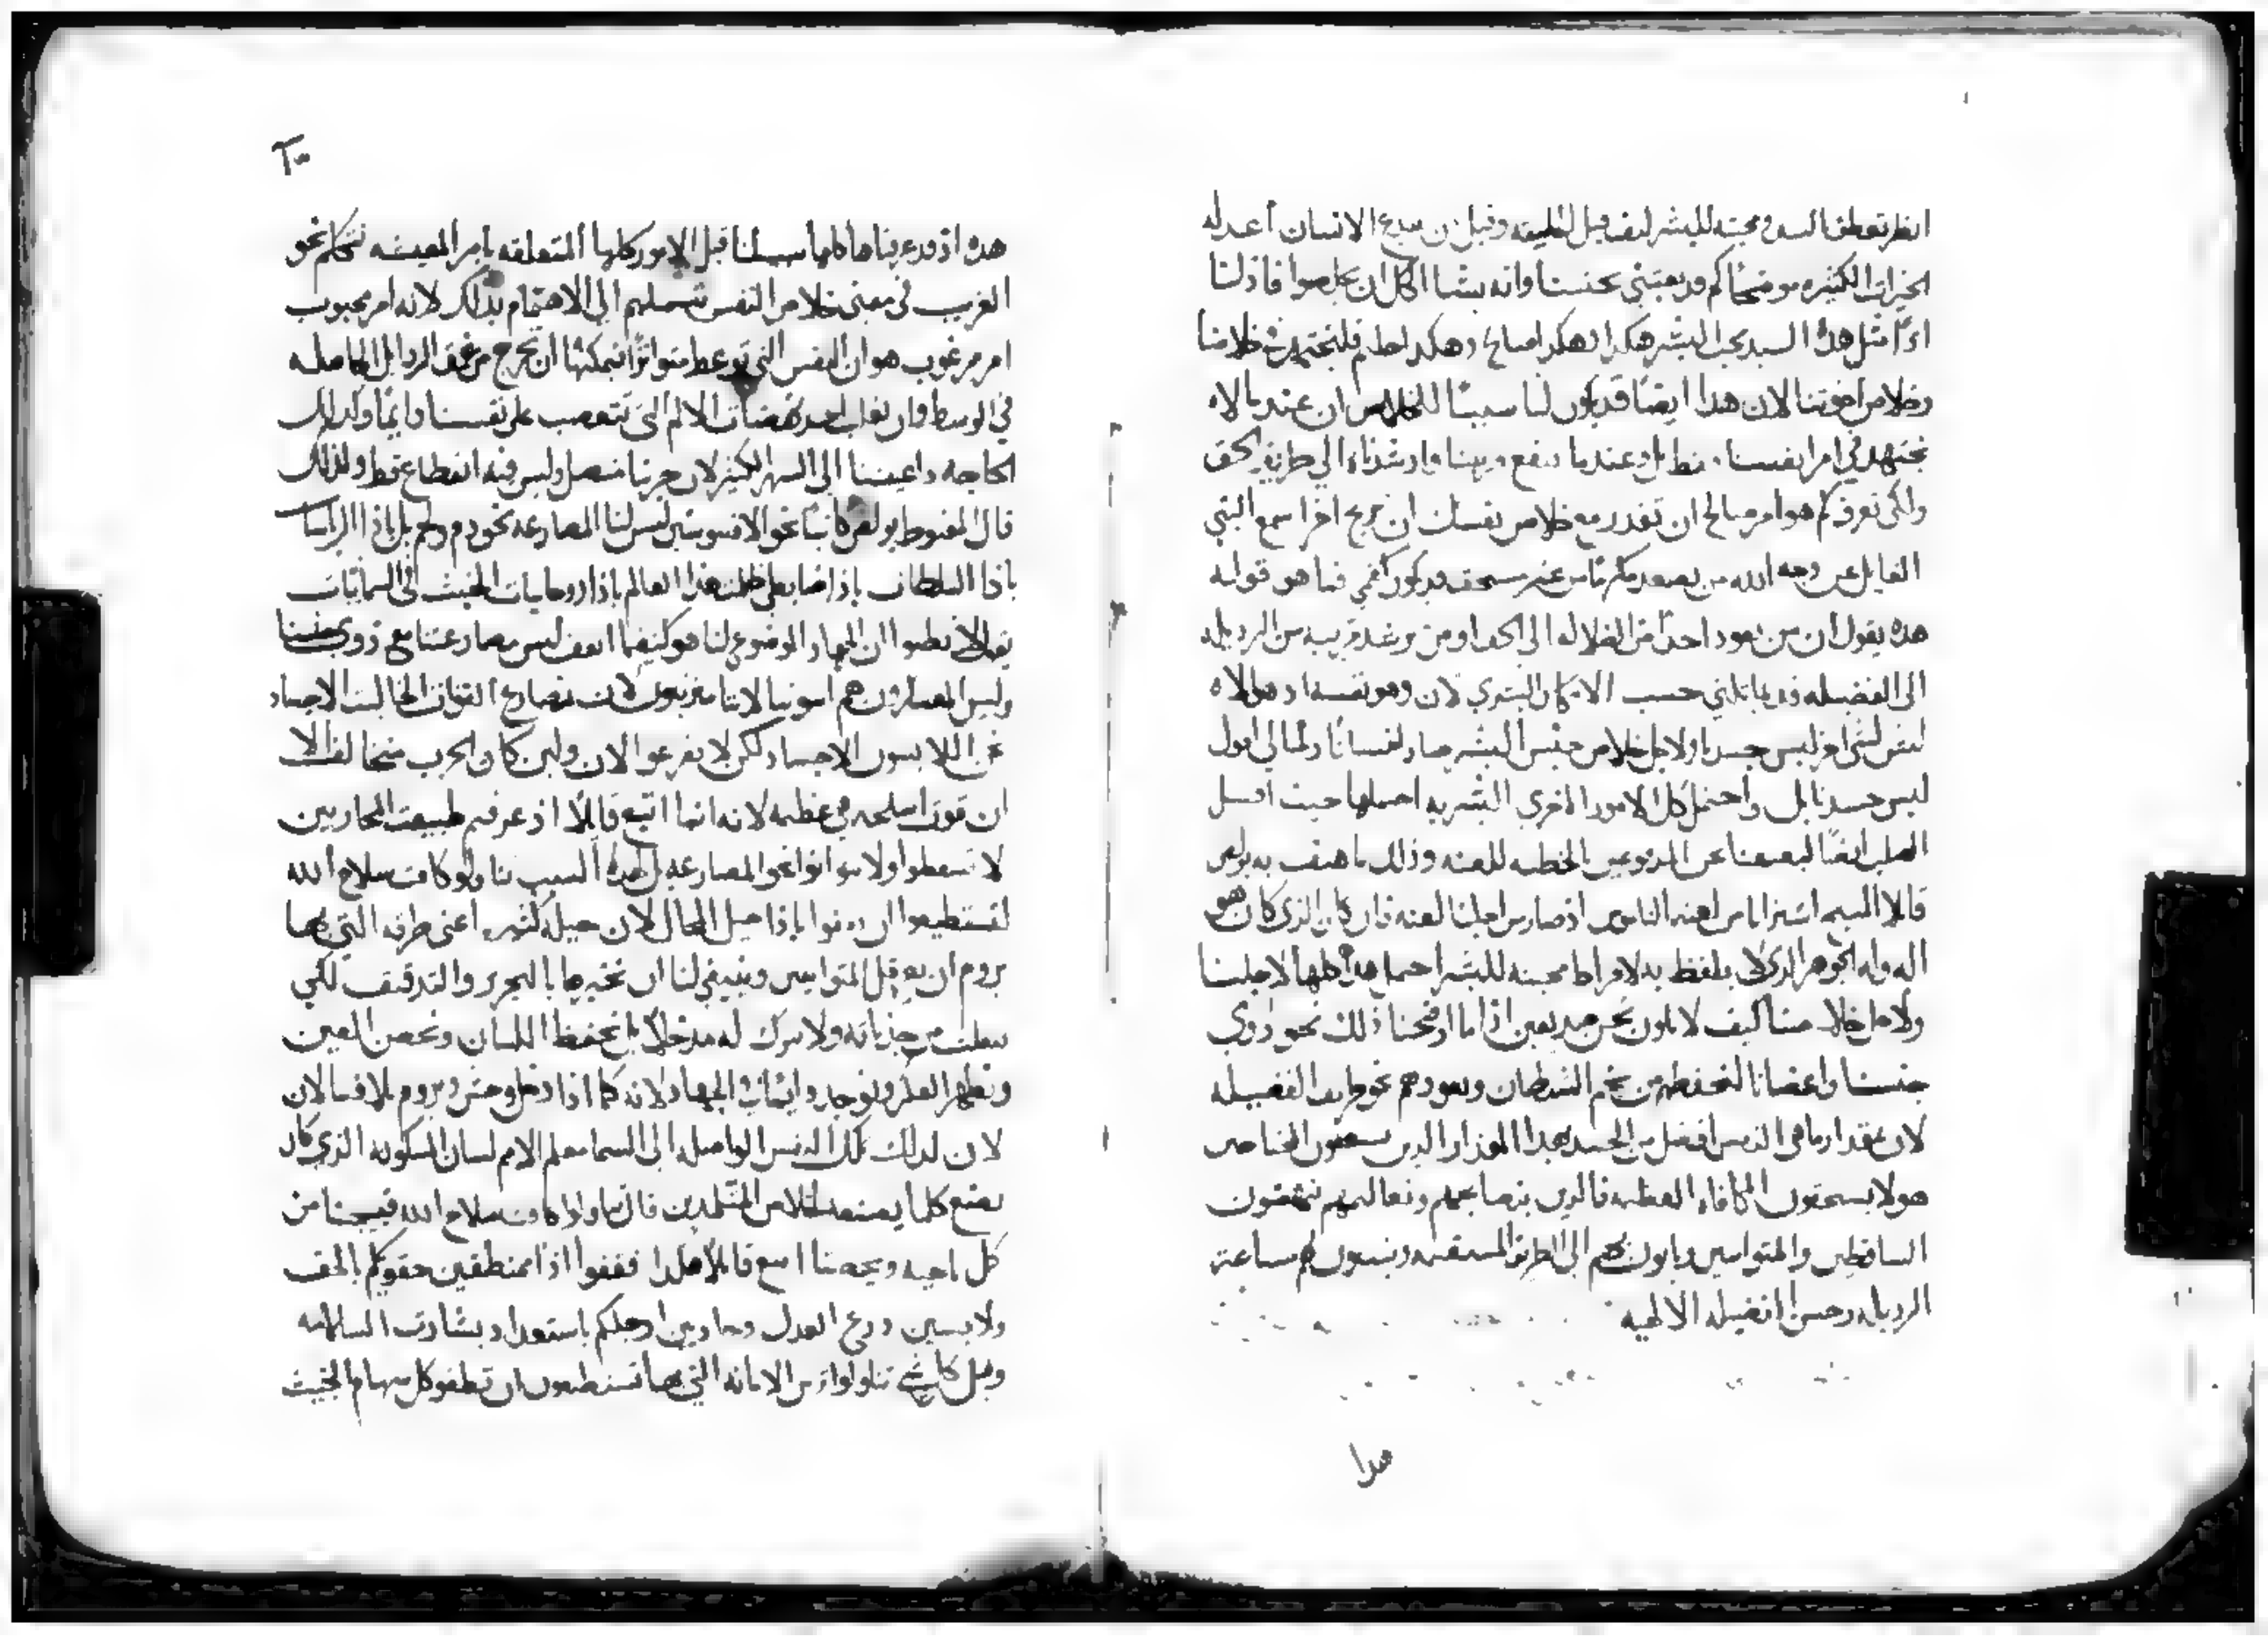 انظر تعطف السيد ومحبته للبشر كيف قبل الخليقه وقبل ان يبدع الانسان أعد له
الخيرات الكثيره موضحًا كم قد يعتني بجنسنا وانه يشا الكل ان يخلصوا فاذ لنا
اذًا مثل هذا السيد محب البشر هكذا وهكذا صالح وهكذا حليم فلنجتهد في خلاصنا
وخلاص اخوتنا لان هذا ايضًا قد يكون لنا سببًا للخلاص ان عندما لا
نجتهد في امر انفسنا فقط بل وعندما ننفع قريبنا وارشدناه الي طريق الحق
ولكي تعرف كم هو امر صالح ان تقدر مع خلاص نفسك ان تربح اخر اسمع النبي
القايل عن وجه الله من يصعد مكرمًا من غير مستحق قد يكون كفمي فما هو قوله
هذه يقول ان من يعود احدًا من الضلاله الى الحق او من يرشد قريبه من الرذيله
الى الفضيله قد يماثلني حسب الامكان البشري لان وهو نفسه اذ هو الاه
ليس لشي اخر لبس جسدنا ولاجل خلاص جنس البشر صار انسانًا ولما لي اقول
لبس جسدنا بل واحتمل كل الامور الاخرى البشريه احتملها حيث اقتبل
الصلب ايضًا ليعتقنا نحن المدنوعين بالخطيه للعنه وذلك ما هتف به بولص
قايلا المسيح اشترانا من لعنه الناموس اذ صار من اجلنا لعنه فان كان الذي كان هو
اله وله الجوهر الذي لا يلفظ به لافراط محبته للبشر احتمل هذا كلها لاجلنا
ولاجل خلاصنا كيف لا نكون نحن مديونين اذا ما اوضحنا ذلك نحو ذوي
جنسنا واعضانا لنحفظهم من فخم الشيطان ونعودهم نحو طريق الفضيله
لان بمقدار ما هي النفس افضل من الجسد بهذا المقدار الذين يستحقون
هولا يستحقون المكافاه العظيمه فالذين بنصايحهم وتعاليمهم ينهضون
الساقطين والمتوانين وياتون بهم الى الطريق المستقيمه ويبينون لهم سماجة
الرذيله وحسن الفضيله الالهيه
هذا
هذه اذ قد عرفناها كلها سبيلنا قبل الامور كلها المتعلقه بامر المعيشه نتكلم نحو
القريب في معنى خلاص النفس نستميلهم الى الاهتمام بذلك لانه امر محبوب
امر مرغوب هو ان النفس التي توعظ متواترًا يمكنها ان تخرج من عمق الرذايل الحاصله
في الوسط وان تغلب نهضات الالام التي تتعصب على نفسنا دايمًا وكذلك
الحاجه داعيتنا الى السهر الكثير لان حربنا متصل وليس فيه انقطاع قط ولذلك
قال المغبوط بولص كاتبًا نحو الافسوسيين ليس لنا المصارعه نحو دم ولحم بل باذا الراسات
باذا السلطات باذا ضابطي ظلمة هذا العالم باذا روحانيات الخبث في السمايات
يقول لا تظنوا ان الجهاد الموضوع لنا هو كيفما اتفق ليس مصارعتنا مع ذوي جنسنا
وليس المصارعون هم اسويا لاننا مزمعون ان نصارع القوات الخاليه من الاجساد
نحن اللابسون الاجساد لكن لا تفزعوا الان ولين كان الحرب متخالف الا
ان قوة اسلحته هي عظيمه لانه انما اتبع قايلًا اذ عرفتم طبيعة المحاربين
لا تسقطوا ولا تتوانوا نحو المصارعه بل لهذا السبب تناولوا كافة سلاح الله
لتستطيعوا ان تقفوا باذا حيل المحال لان حيله كثيره اعنى طرقه التي بها
يروم ان يعرقل المتوانيين وينبغي لنا ان نخبرها بالتحرير والتدقيق لكي
نفلت من جذباته ولا نترك له مدخلا بل نحفظ اللسان ونحصن العين
ونطهر العقل ونوجد دايمًا في الجهاد لانه كما اذا دخل وحش ويروم ملافانا لان
لان لذلك تلك النفس الواصله الى السما معلم الامم لسان المسكونه الذي كان
يصنع كلما يصنعه لخلاص المتتلمذين قال تناولوا كافة سلاح الله فيسجنا من
كل ناحيه ويحصننا اسمع قايلًا هكذا فقفوا اذًا ممنطقين حقوكم بالحق
ولابسين درع العدل وحاذين ارجلكم باستعداد بشارة السلامه
وقبل كل شي تناولوا ترس الامانه التي بها تستطيعون ان تطفوا كل سهام الخبيث